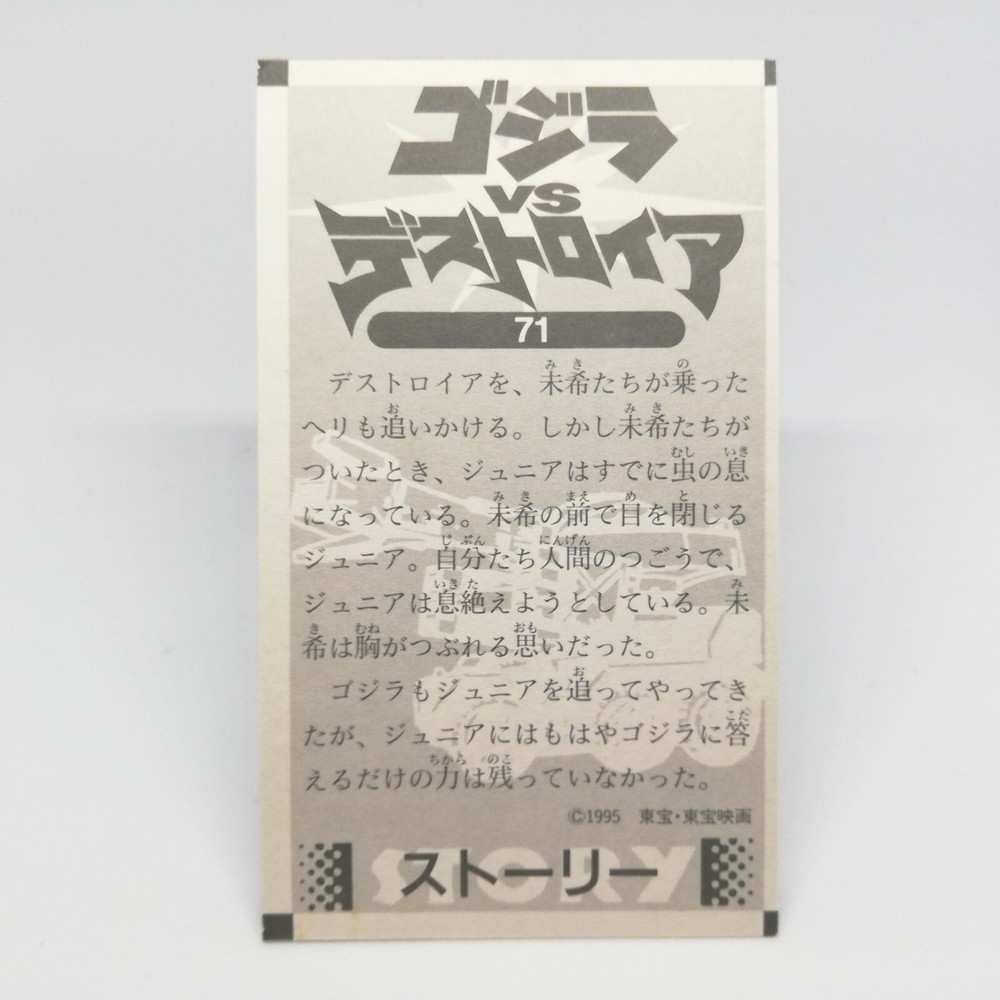 ゴジラ
VS
デストロイア
71
デストロイアを、未希たちが乗った
ヘリも追いかける。しかし未希たちが
ついたとき、ジュニアはすでに虫の息
になっている。未希の前で目を閉じる
ジュニア。自分たち人間のつごうで、
ジュニアは息絶えようとしている。未
希は胸がつぶれる思いだった。
ゴジラもジュニアを追ってやってき
たが、ジュニアにはもはやゴジラに答
えるだけの力は残っていなかった。
©1995 東宝・東宝映画
STORY
ストーリー